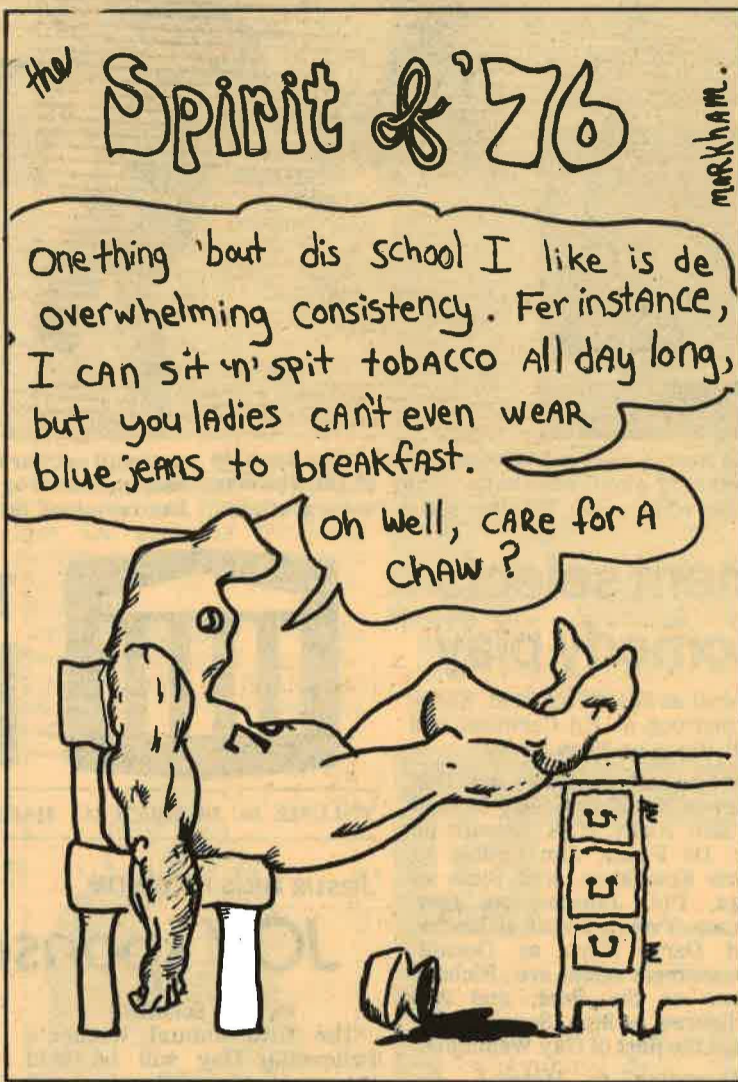 the Spirit of '76
markham.
One thing 'bout dis school I like is de
overwhelming consistency. Fer instance,
I can sit 'n' spit tobacco all day long,
but you ladies can't even wear
blue jeans to breakfast.
Oh well, care for a
chaw?